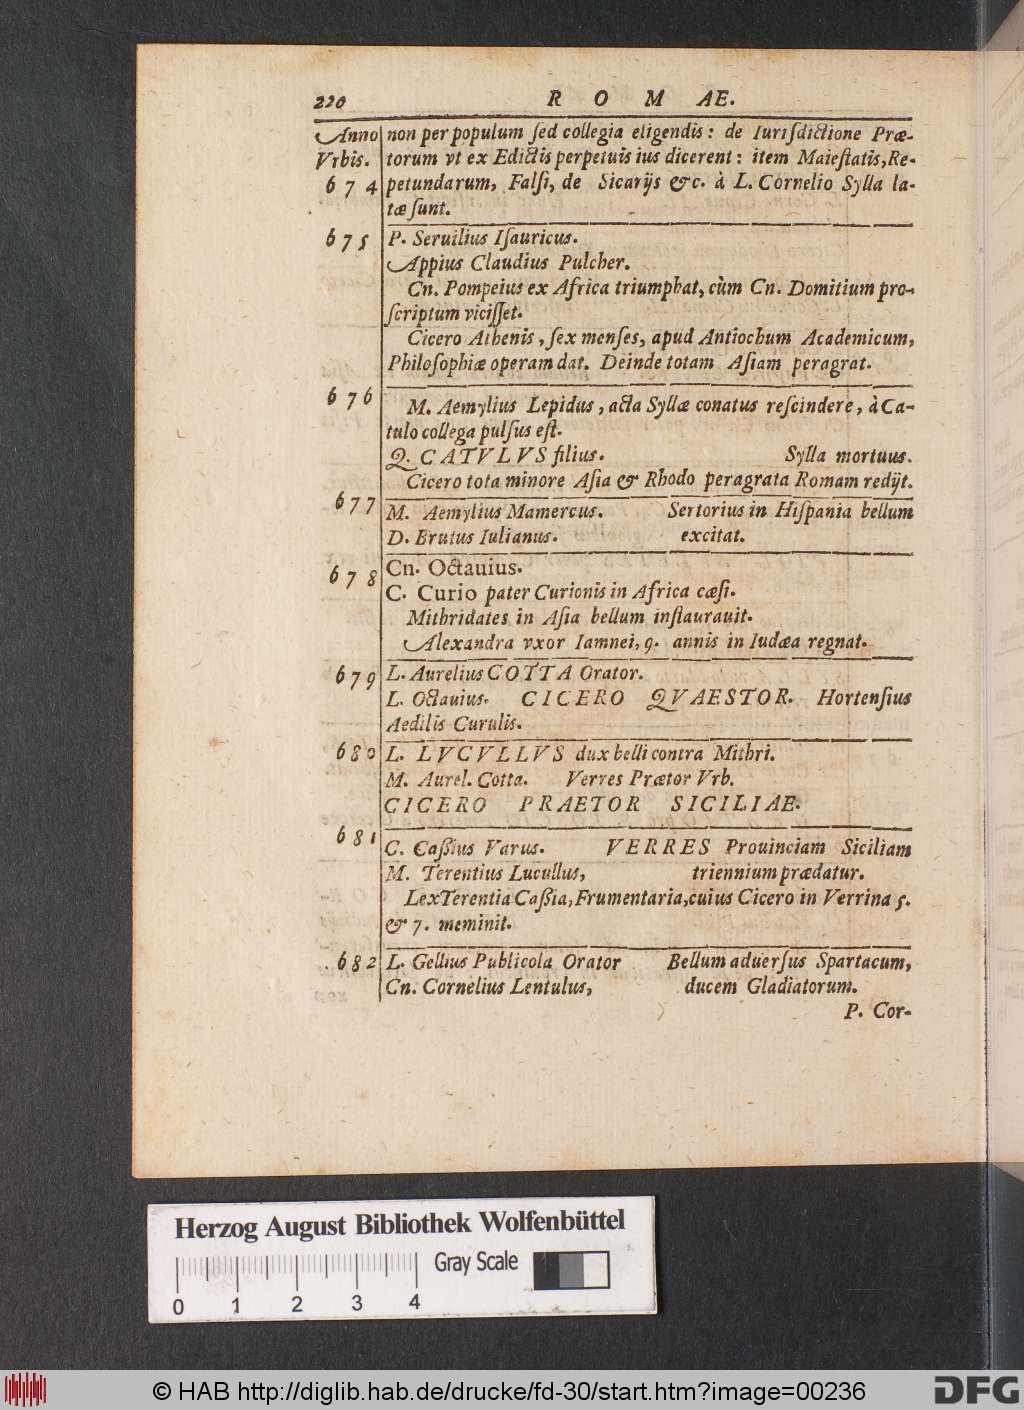 220 R O M AE.
Anno non per populum ſed collegia eligendis: de Iuriſdictione Præ-
Vrbis. torum vt ex Edictis perpetuis ius dicerent: item Maieſtatis, Re-
674 petundarum, Falſi, de Sicarijs &c. à L. Cornelio Sylla la-
tæ ſunt.
675 P. Seruilius Iſauricus.
Appius Claudius Pulcher.
Cn. Pompeius ex Africa triumphat, cùm Cn. Domitium pro-
ſcriptum viciſſet.
Cicero Athenis, ſex menſes, apud Antiochum Academicum,
Philoſophiæ operam dat. Deinde totam Aſiam peragrat.
676 M. Aemylius Lepidus, acta Syllæ conatus reſcindere, à Ca-
tulo collega pulſus eſt.
Q. CATVLVS filius. Sylla mortuus.
Cicero tota minore Aſia & Rhodo peragrata Romam redijt.
677 M. Aemylius Mamercus. Sertorius in Hiſpania bellum
D. Brutus Iulianus. excitat.
678 Cn. Octauius.
C. Curio pater Curionis in Africa cæſi.
Mithridates in Aſia bellum inſtaurauit.
Alexandra vxor Iamnei, 9. annis in Iudæa regnat.
679 L. Aurelius COTTA Orator.
L. Octauius. CICERO QVAESTOR. Hortenſius
Aedilis Curulis.
680 L. LVCVLLVS dux belli contra Mithri.
M. Aurel. Cotta. Verres Prætor Vrb.
CICERO PRAETOR SICILIAE.
681 C. Caßius Varus. VERRES Prouinciam Siciliam
M. Terentius Lucullus, triennium prædatur.
Lex Terentia Caßia, Frumentaria, cuius Cicero in Verrina 5.
& 7. meminit.
682 L. Gellius Publicola Orator Bellum aduerſus Spartacum,
Cn. Cornelius Lentulus, ducem Gladiatorum.
P. Cor-
Herzog August Bibliothek Wolfenbüttel
Gray Scale
0 1 2 3 4
© HAB http://diglib.hab.de/drucke/fd-30/start.htm?image=00236
DFG